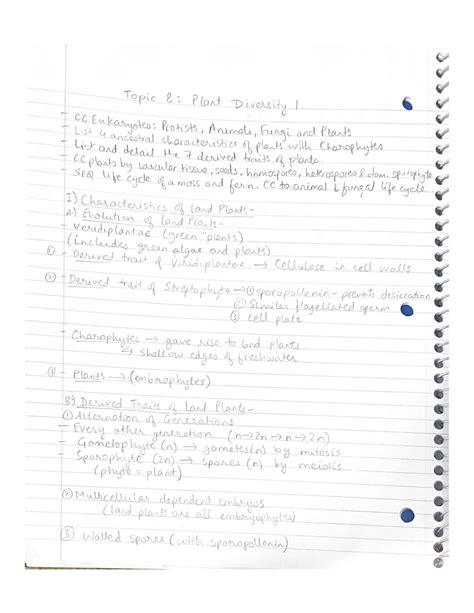 Topic 8: Plant Diversity 1
- CC Eukaryotes: Protists, Animals, Fungi and Plants
- List 4 ancestral characteristics of plants with Charophytes
- List and detail the 7 derived traits of plants.
- CC plants by vascular tissue, seeds, homospore, heterospore & dom. sporophyte
SEQ life cycle of a moss and fern. CC to animal & fungal life cycle
I) Characteristics of Land Plants-
A) Evolution of Land Plants-
- Veridiplantae (green "plants")
(includes green algae and plants)
- Derived trait of Viridiplantae → Cellulose in cell walls
- Derived trait of Streptophyta → ① sporopollenin - prevents desiccation
② Similar flagellated sperm
③ cell plate
- Charophytes → gave rise to land plants
↳ shallow edges of freshwater
- Plants → (embrophytes)
B) Derived Traits of Land Plants-
① Alternation of Generations
- Every other generation (n→2n→n→2n)
- Gametophyte (n) → gametes (n) by mitosis
- Sporophyte (2n) → spores (n) by meiosis
(phyte = plant)
② Multicellular dependent embryos
(land plants are all embryophytes)
③ Walled spores (with sporopollenin)